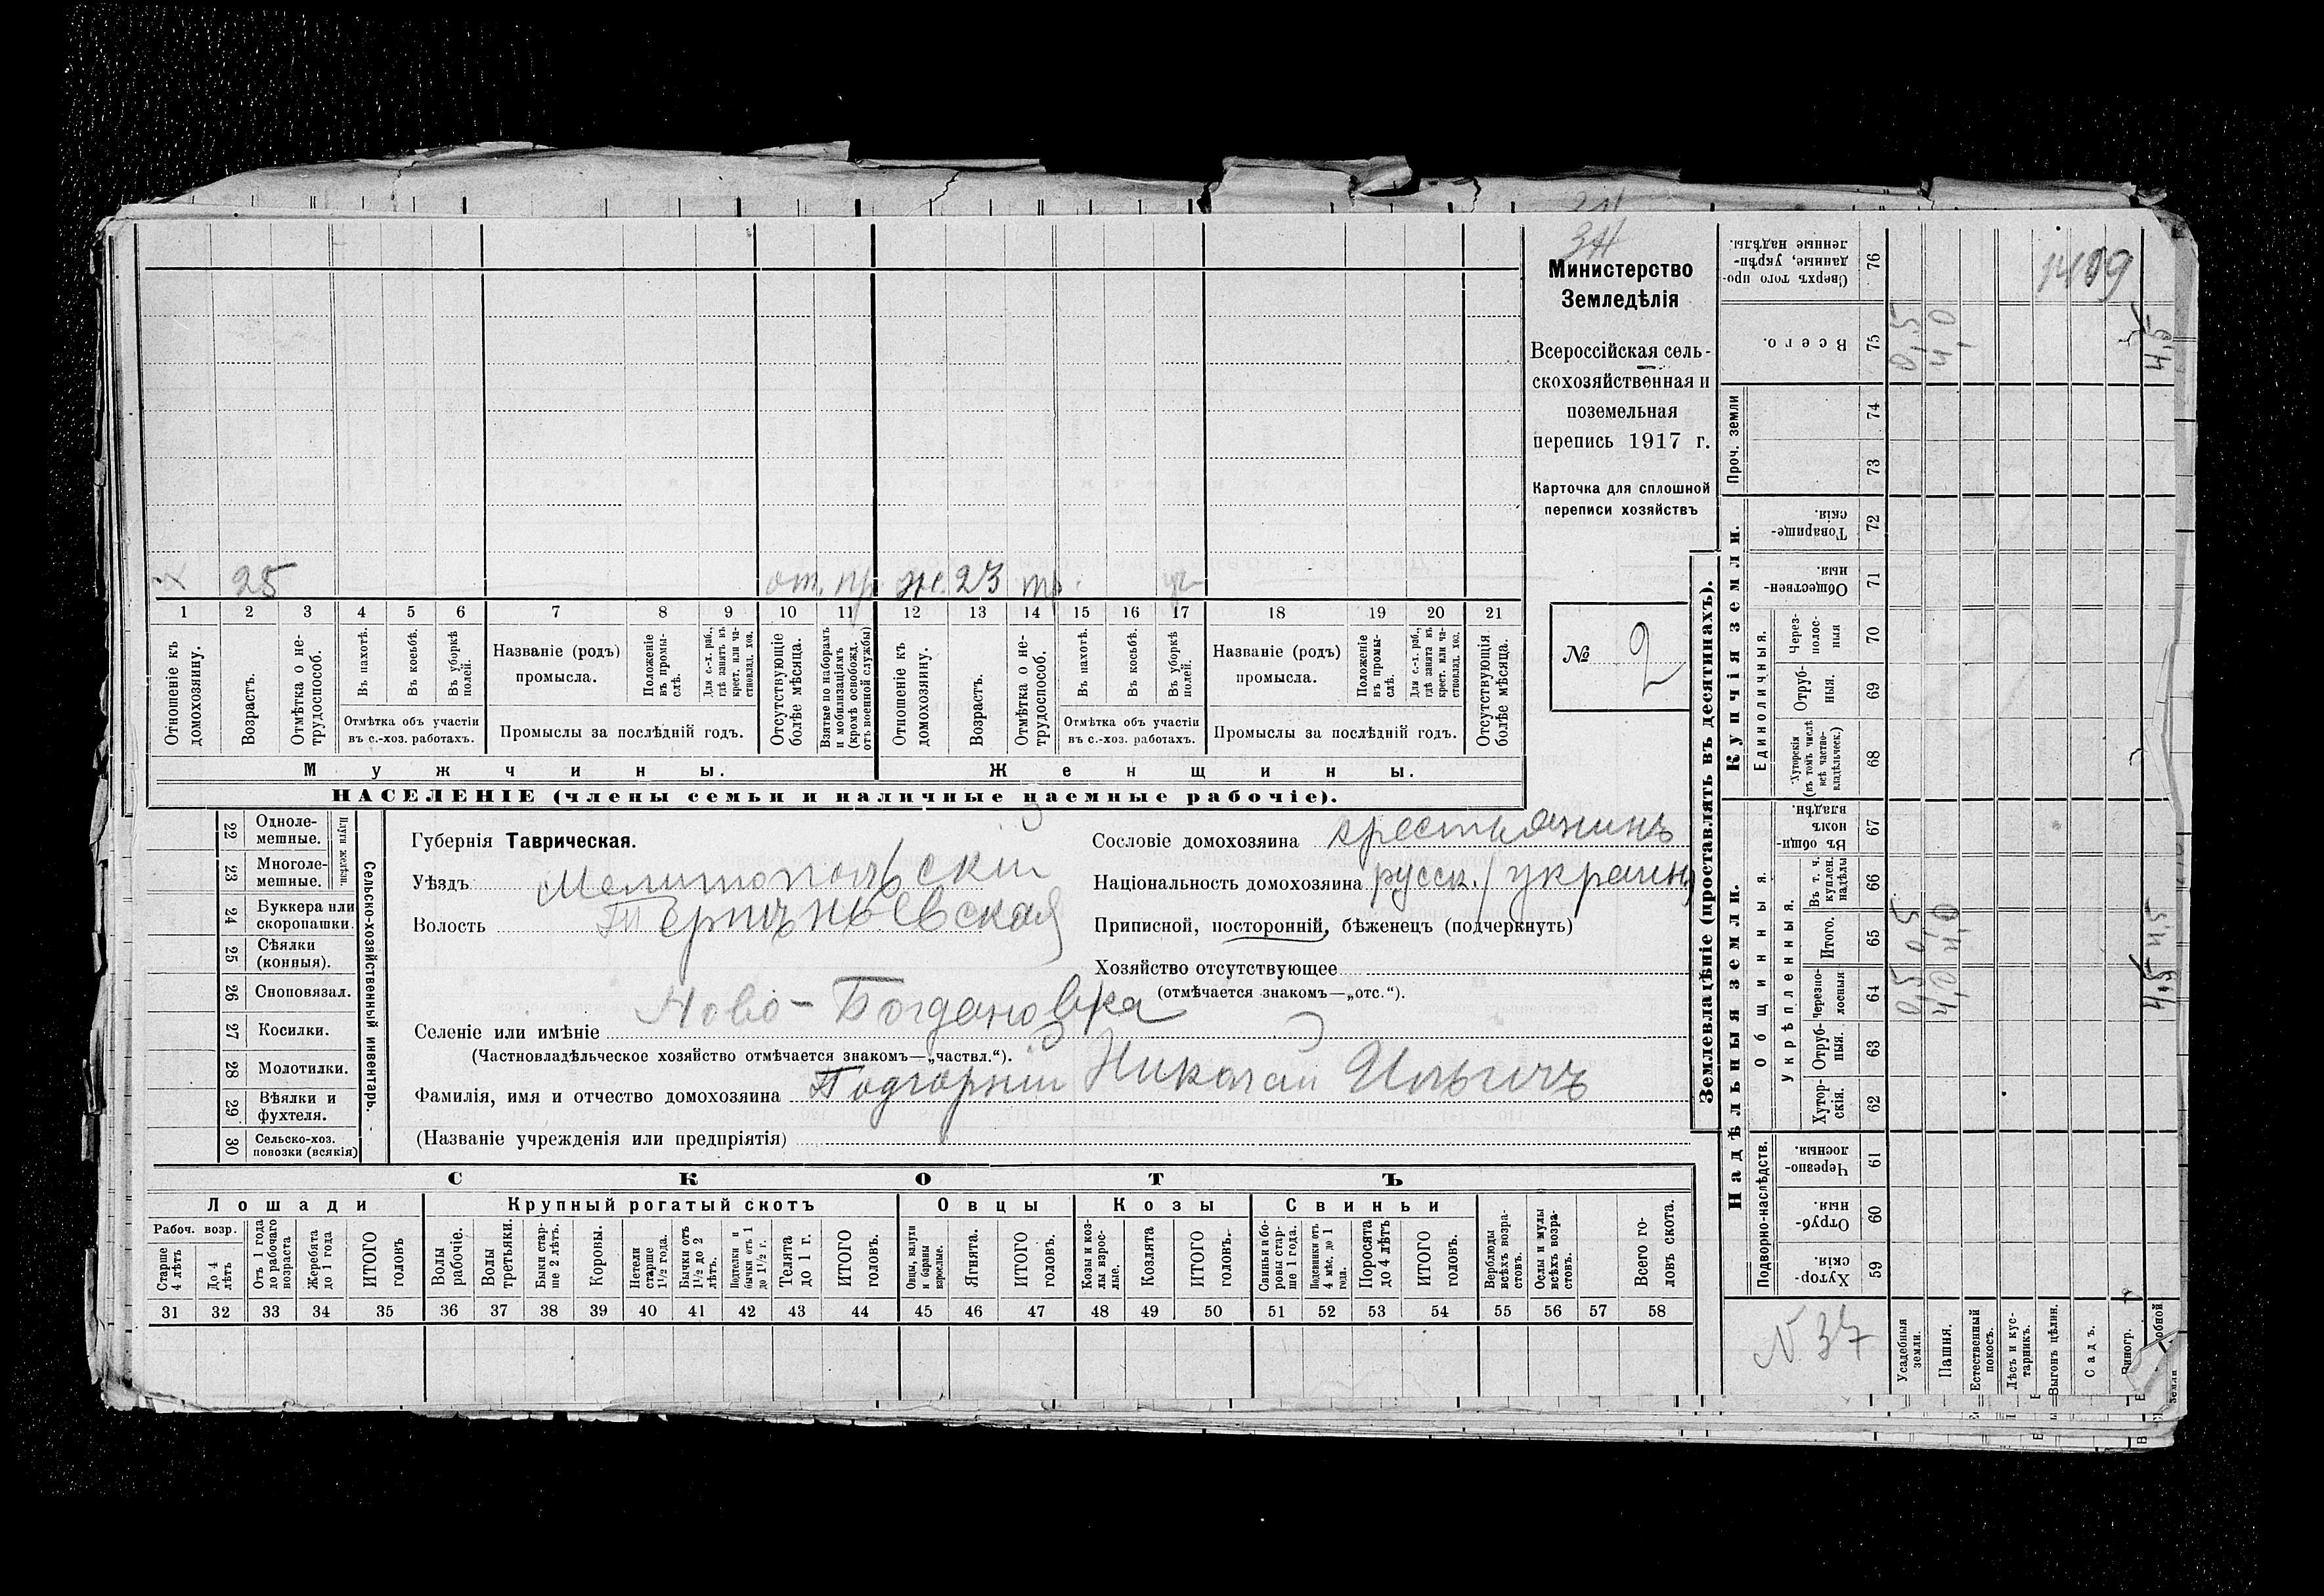 34
Министерство
Земледѣлія
Всероссійская сель-
скохозяйственная и
поземельная
перепись 1917 г.
Карточка для сплошной
переписи хозяйствъ
№ 2
х 25 от. пр. же. 23 тр. уч
1 2 3 4 5 6 7 8 9 10 11 12 13 14 15 16 17 18 19 20 21
Отношеніе къ
домохозяину.
Возрастъ.
Отмѣтка о не-
трудоспособ.
Въ пахотѣ.
Въ косьбѣ.
Въ уборкѣ
полей.
Отмѣтка объ участіи
въ с.-хоз. работахъ.
Названіе (родъ)
промысла.
Положеніе
въ промы-
слѣ.
Для с.-х. раб.,
гдѣ занятъ въ
крест. или ча-
стновлад. хоз.
Промыслы за послѣдній годъ.
Отсутствующіе
болѣе мѣсяца.
Взятые по наборамъ
и мобилизаціямъ
(кромѣ освобожд.
отъ военной службы)
Отношеніе къ
домохозяину.
Возрастъ.
Отмѣтка о не-
трудоспособ.
Въ пахотѣ.
Въ косьбѣ.
Въ уборкѣ
полей.
Отмѣтка объ участіи
въ с.-хоз. работахъ.
Названіе (родъ)
промысла.
Положеніе
въ промы-
слѣ.
Для с.-х. раб.,
гдѣ занята въ
крест. или ча-
стновлад. хоз.
Промыслы за послѣдній годъ.
Отсутствующія
болѣе мѣсяца.
Мужчины. Женщины.
НАСЕЛЕНІЕ (члены семьи и наличные наемные рабочіе).
Сельско-хозяйственный инвентарь.
Плуги желѣзн.
22 Одноле-
мешные.
23 Многоле-
мешные.
24 Буккера или
скоропашки.
25 Сѣялки
(конныя).
26 Сноповязал.
27 Косилки.
28 Молотилки.
29 Вѣялки и
фухтеля.
30 Сельско-хоз.
повозки (всякія)
Губернія Таврическая.
Уѣздъ Мелитопольскій
Волость Терпѣньевская
Селеніе или имѣніе Ново-Богдановка
(Частновладѣльческое хозяйство отмѣчается знакомъ—„частвл.“).
Фамилія, имя и отчество домохозяина Подгорній Николай Ильичъ
(Названіе учрежденія или предпріятія)
Сословіе домохозяина крестьянинъ
Національность домохозяина русск. (украин)
Приписной, посторонній, бѣженецъ (подчеркнуть)
Хозяйство отсутствующее
(отмѣчается знакомъ—„отс.“).
СКОТЪ
Лошади Крупный рогатый скотъ Овцы Козы Свиньи
Рабоч. возр.
Старше
4 лѣтъ
До 4
лѣтъ
Отъ 1 года
до рабочаго
возраста
Жеребята
до 1 года
ИТОГО
головъ
Волы
рабочіе.
Волы
третьяки.
Быки стар-
ше 2 лѣтъ.
Коровы.
Нетели
старше
1½ года.
Бычки отъ
1½ до 2
лѣтъ.
Подтелки и
бычки отъ 1
до 1½ г.
Телята
до 1 г.
ИТОГО
головъ.
Овцы, валухи
и бараны
взрослые.
Ягнята.
ИТОГО
головъ.
Козы и коз-
лы взрос-
лые.
Козлята
ИТОГО
головъ.
Свиньи и бо-
ровы стар-
ше 1 года.
Подсвинки отъ
4 мѣс. до 1
года.
Поросята
до 4 лѣтъ
ИТОГО
головъ.
Верблюды
всѣхъ возра-
стовъ.
Ослы и мулы
всѣхъ возра-
стовъ.
Всего го-
ловъ скота.
31 32 33 34 35 36 37 38 39 40 41 42 43 44 45 46 47 48 49 50 51 52 53 54 55 56 57 58
Землевладѣніе (проставлять въ десятинахъ).
Надѣльныя земли. Купчія земли. Проч. земли
Подворно-наслѣдств.
Общинныя.
Укрѣпленныя.
Единоличныя.
Хутор-
скія. 59
Отруб-
ныя. 60
Черезпо-
лосныя. 61
Хутор-
скія. 62
Отруб-
ныя. 63
Черезпо-
лосныя 64
Итого. 65
Въ т. ч.
куплен.
надѣлы 66
Въ общи-
номъ
владѣн. 67
Хуторскія
(въ томъ числѣ
всѣ частно-
владѣльческ.) 68
Отруб-
ныя. 69
Через-
полос-
ныя 70
Обществен-
ныя. 71
Товарище-
скія. 72
73
74
Всего. 75
Сверхъ того про-
данные, укрѣп-
ленные надѣлы. 76
1409
N 37
Усадебныя
земли. 0,5 0,5 0,5
Пашня. 4,0 4,0 4,0
Естественный
покосъ.
Лѣсъ и кус-
тарникъ.
Выгонъ цѣлин.
Садъ.
Виногр.
4,5 4,5 4,5